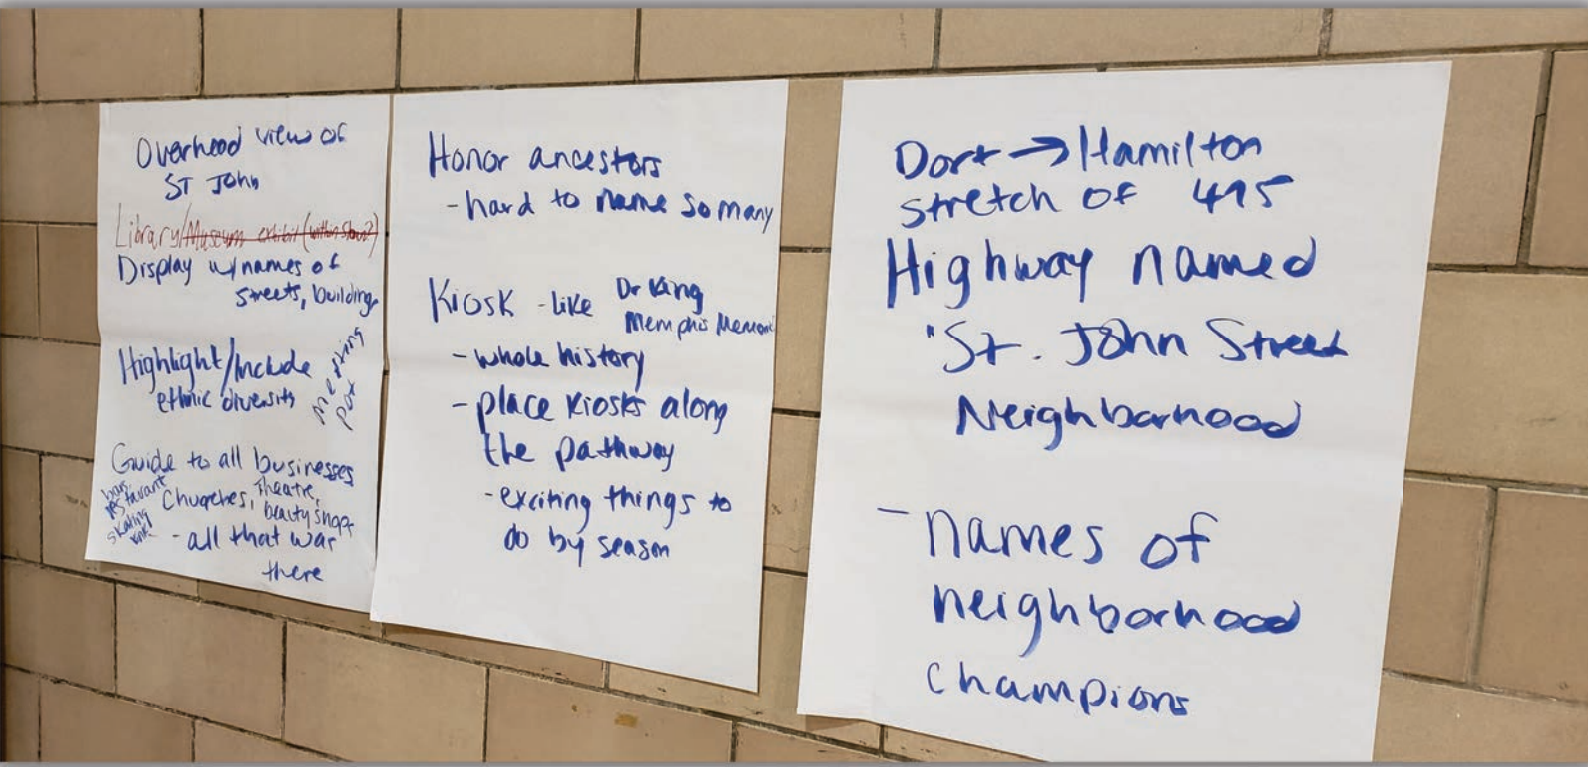 Overhead view of
ST John
Library/Museum exhibit (within Sloan?)
Display w/names of
streets, buildings
Highlight/Include
ethnic diversity
melting
pot
Guide to all businesses
bars,
restaurant
skating
rink!
Churches, theatre,
beauty shops
- all that was
there
Honor ancestors
- hard to name so many
Kiosk - like Dr King
Memphis Memorial
- whole history
- place kiosks along
the pathway
- exciting things to
do by season
Dort → Hamilton
stretch of 475
Highway named
"St. John Street
Neighborhood
- names of
neighborhood
champions